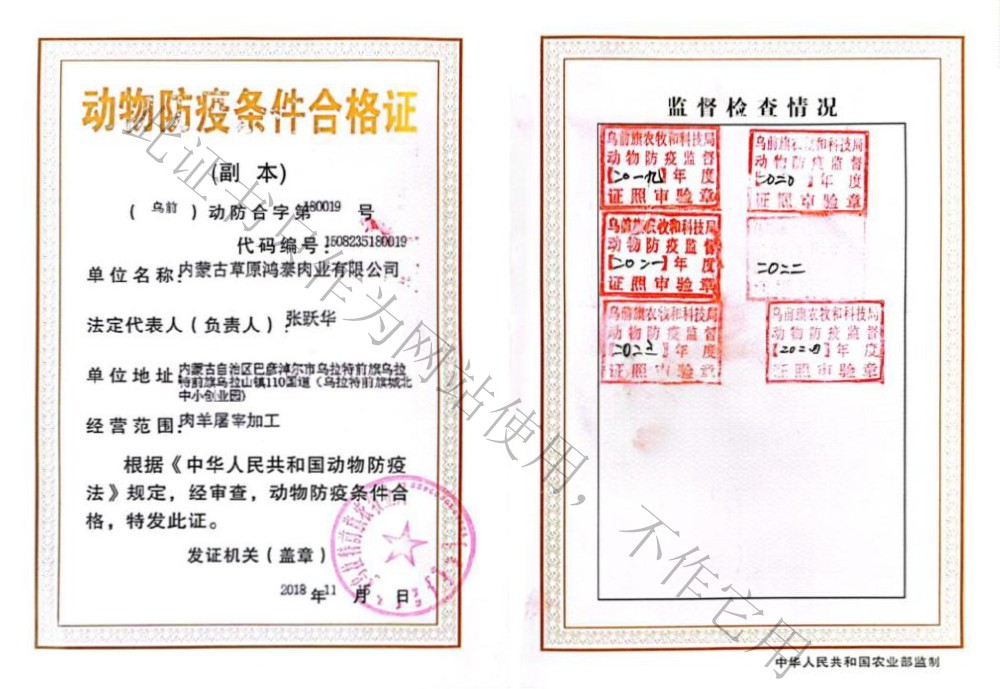 动物防疫条件合格证
(副 本)
( 乌前 ) 动防合字第180019 号
代码编号:1508235180019
单位名称:内蒙古草原鸿寨肉业有限公司
法定代表人(负责人):张跃华
单位地址:内蒙古自治区巴彦淖尔市乌拉特前旗乌拉
特前旗乌拉山镇110国道(乌拉特前旗城北
中小创业园)
经营范围:肉羊屠宰加工
根据《中华人民共和国动物防疫
法》规定,经审查,动物防疫条件合
格,特发此证。
发证机关(盖章)
2018 年 11 月 日
监督检查情况
乌前旗农牧和科技局
动物防疫监督
【二〇一九】年度
证照审验章
乌前旗农牧和科技局
动物防疫监督
【2020】年度
证照审验章
乌前旗农牧和科技局
动物防疫监督
【二〇二一】年度
证照审验章
二〇二二
乌前旗农牧和科技局
动物防疫监督
【二〇二三】年度
证照审验章
乌前旗农牧和科技局
动物防疫监督
【2024】年度
证照审验章
中华人民共和国农业部监制
此证书仅作为网站使用,不作它用